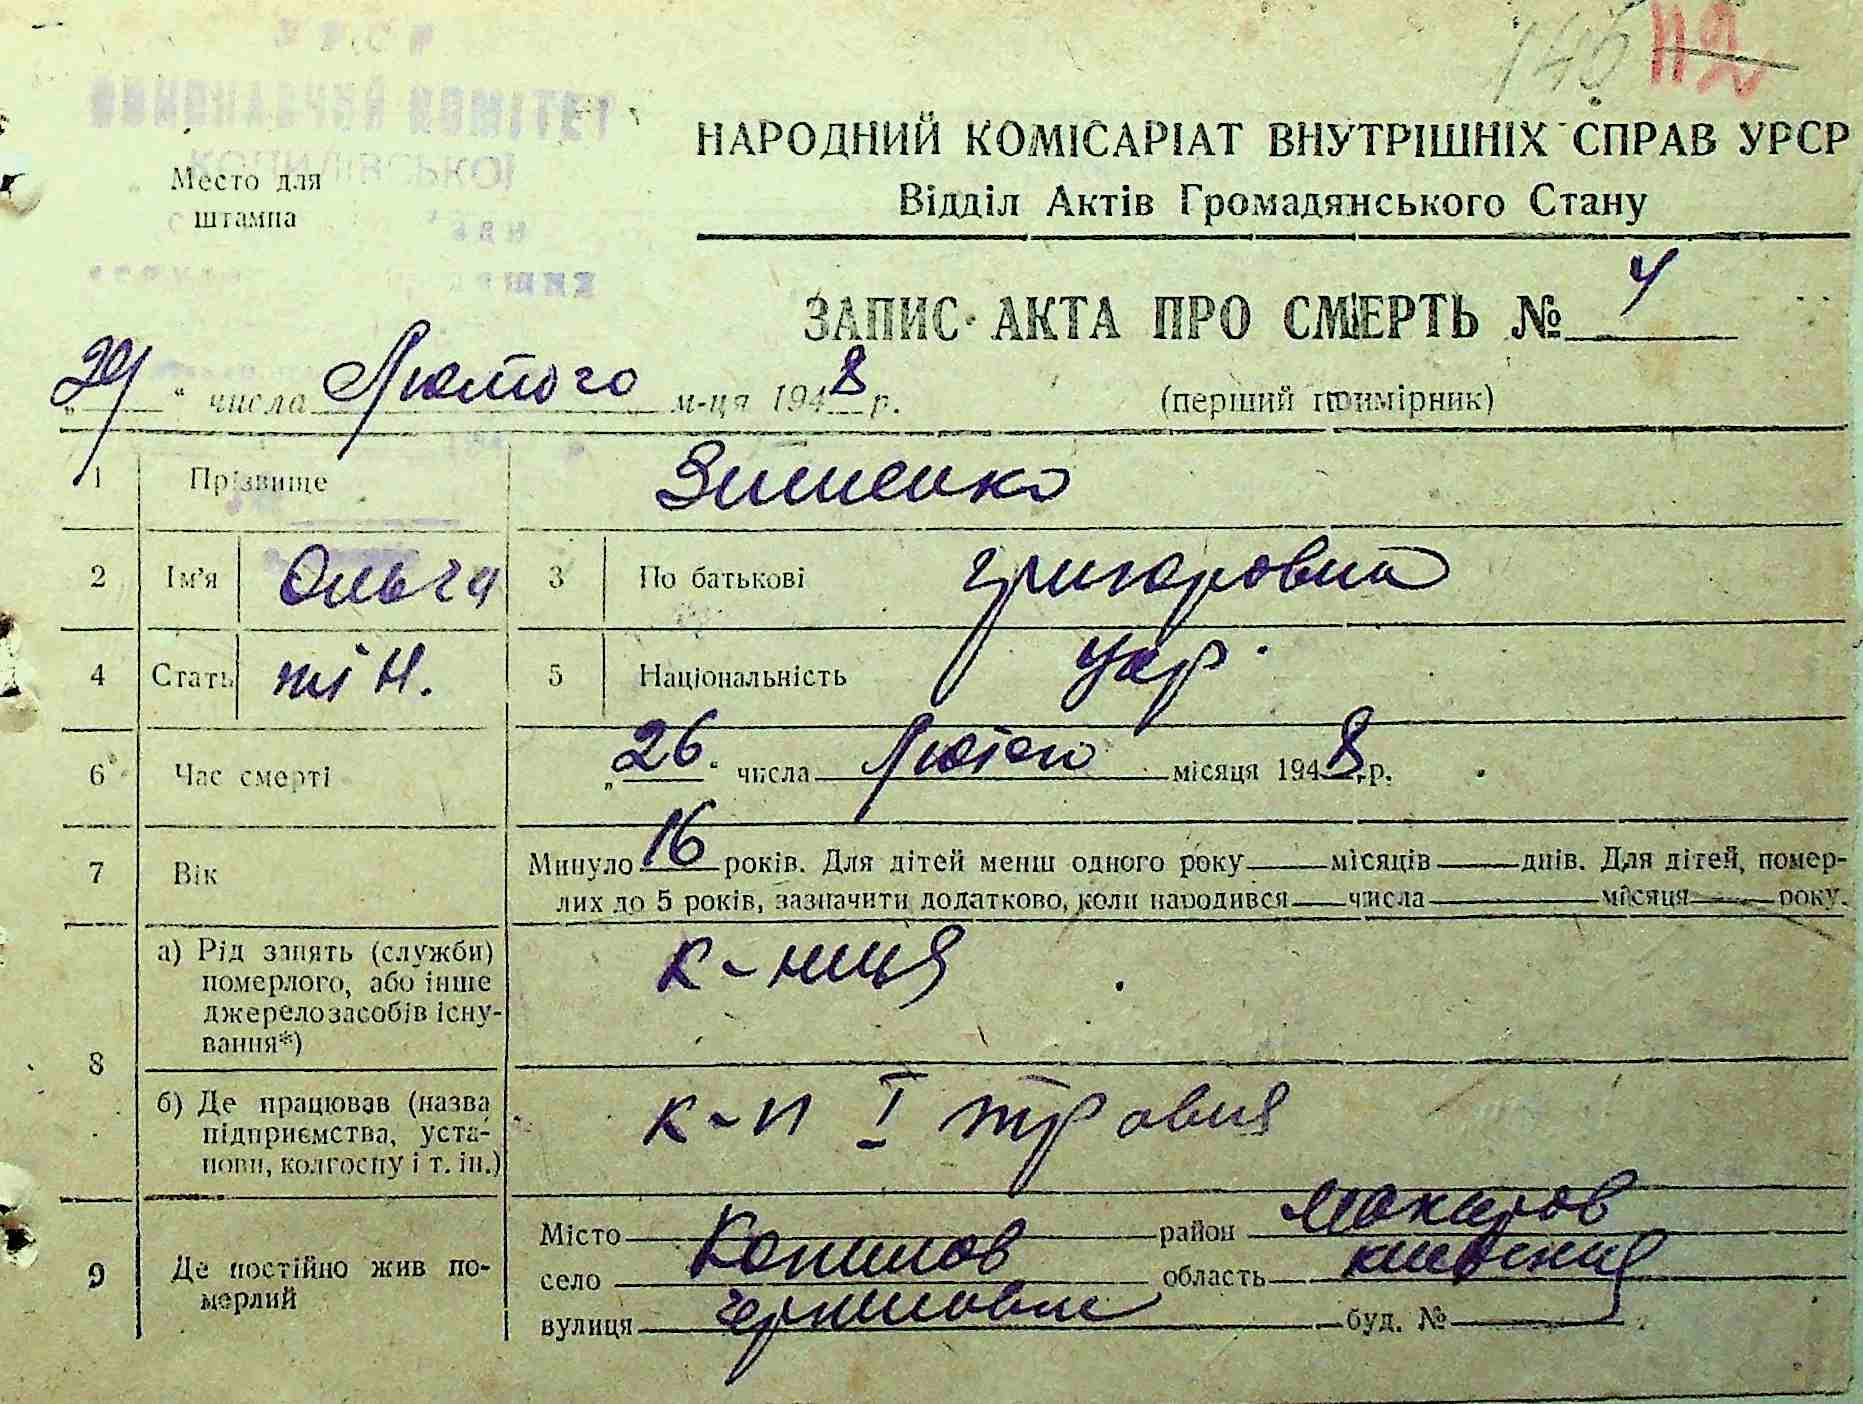 УРСР
ВИКОНАВЧИЙ КОМІТЕТ
КОПИЛІВСЬКОЇ
146 112
НАРОДНИЙ КОМІСАРІАТ ВНУТРІШНІХ СПРАВ УРСР
Место для
штампа
Відділ Актів Громадянського Стану
ЗАПИС АКТА ПРО СМЕРТЬ № 4
„29" числа Лютого м-ця 1948 р.
(перший примірник)
1 Прізвище Зименко
2 Ім'я Ольга 3 По батькові Григоровна
4 Стать жін. 5 Національність Укр.
6 Час смерті „26." числа Лютого місяця 1948 р.
7 Вік Минуло 16 років. Для дітей менш одного року місяців днів. Для дітей, помер-
лих до 5 років, зазначити додатково, коли народився числа місяця року.
8 а) Рід занять (служби)
померлого, або інше
джерело засобів існу-
вання*)
к-ниця
б) Де працював (назва
підприємства, уста-
нови, колгоспу і т. ін.)
к-п І травня
9 Де постійно жив по-
мерлий
Місто район Макаров
село Копилов область киевския
вулиця буд. №